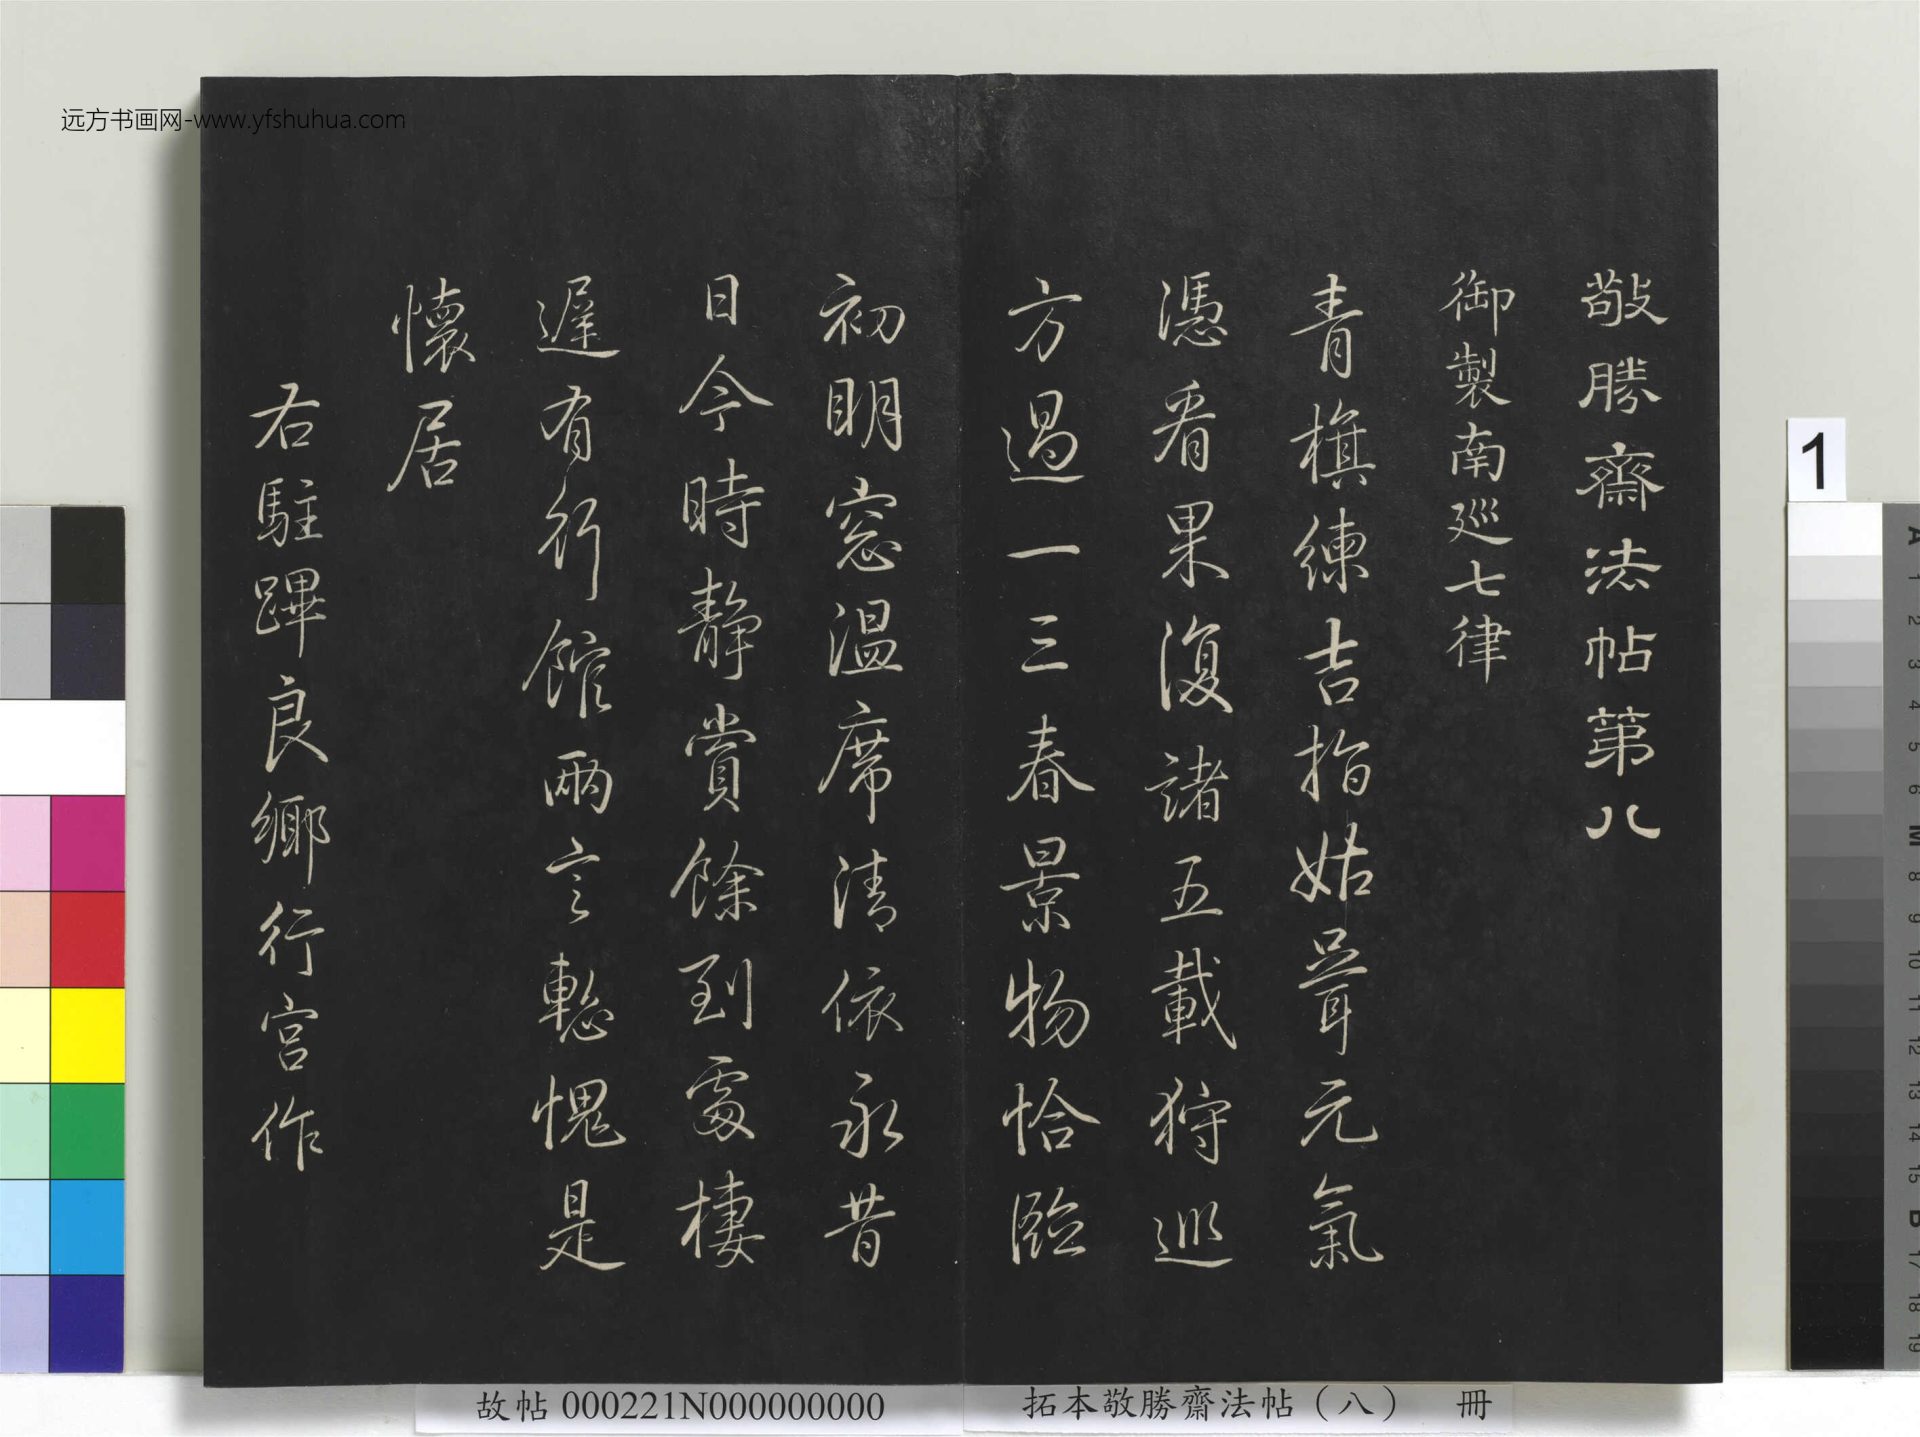 敬勝齋法帖第八
御製南巡七律
青旗練吉指姑茸元氣
憑看果復諸五載狩巡
方過一三春景物恰臨
初明窓温席清依永昔
日今時靜賞餘到處棲
遲有行館兩言慙愧是
懷居
右駐蹕良鄉行宮作
远方书画网-www.yfshuhua.com
故帖 000221N000000000
拓本敬勝齋法帖（八） 冊
1